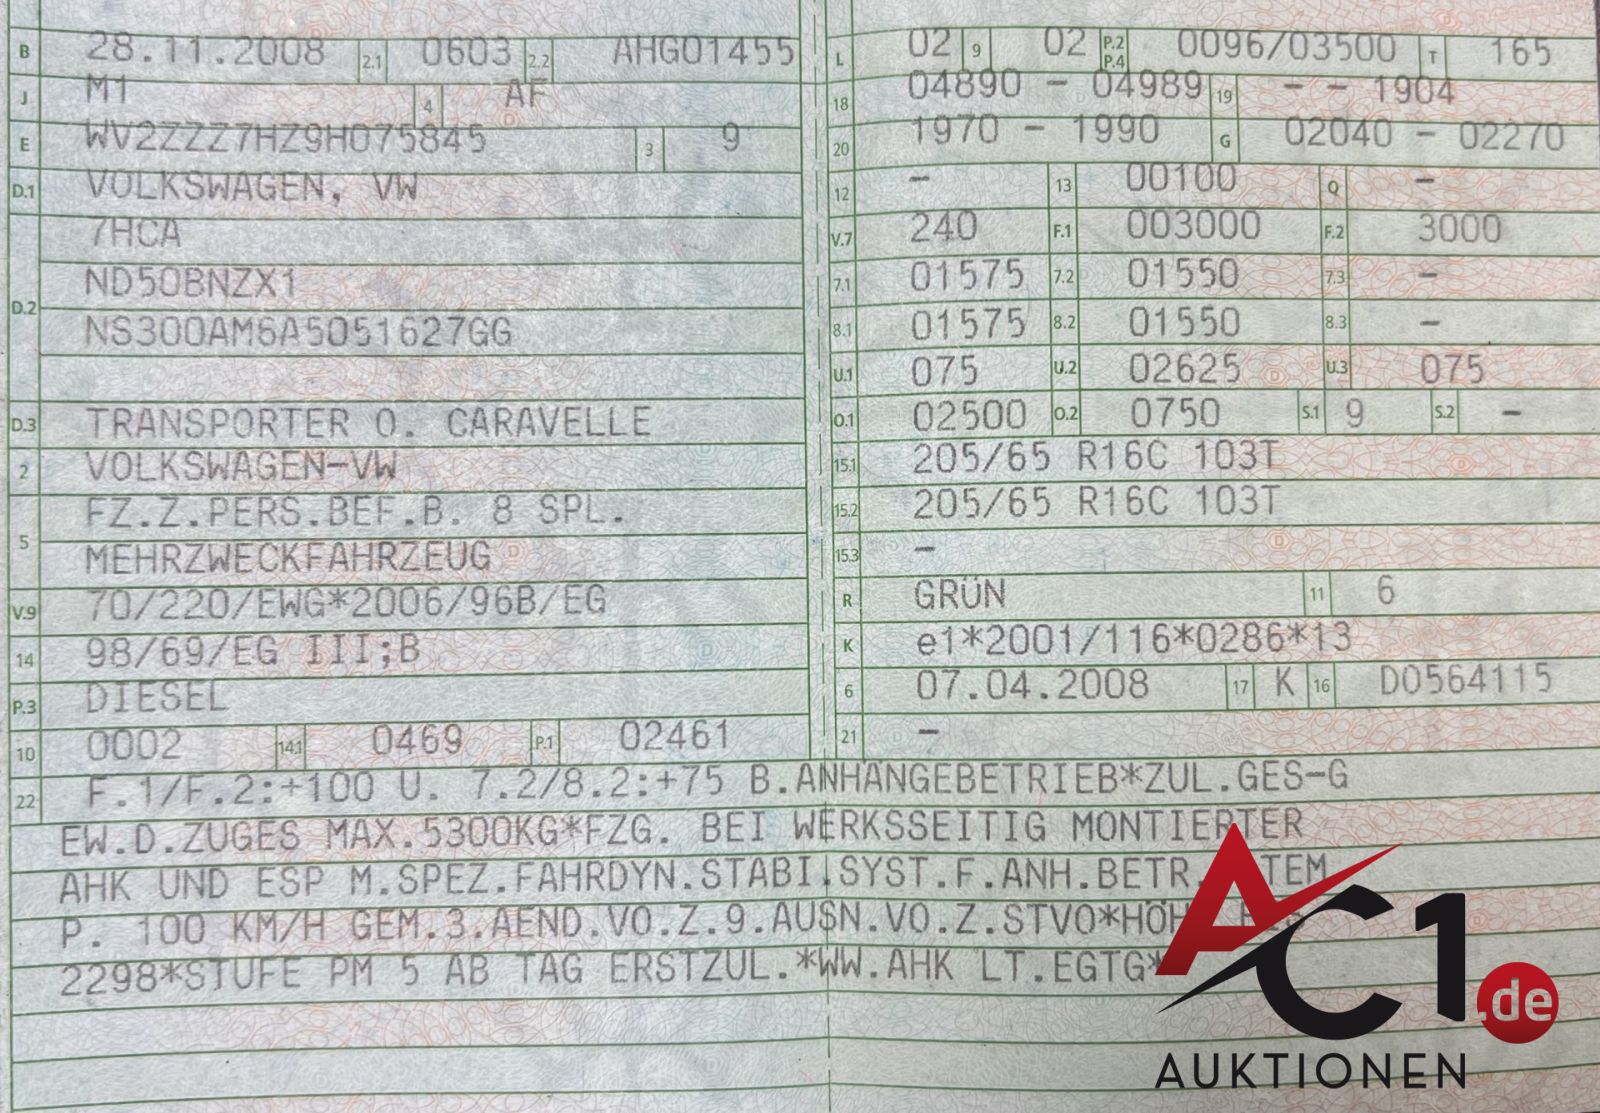 B 28.11.2008 2.1 0603 2.2 AHG01455
J M1 4 AF
E WV2ZZZ7HZ9H075845 3 9
D.1 VOLKSWAGEN, VW
7HCA
D.2 ND50BNZX1
NS300AM6A5051627GG
D.3 TRANSPORTER O. CARAVELLE
2 VOLKSWAGEN-VW
5 FZ.Z.PERS.BEF.B. 8 SPL.
MEHRZWECKFAHRZEUG
V.9 70/220/EWG*2006/96B/EG
14 98/69/EG III;B
P.3 DIESEL
10 0002 14.1 0469 P.1 02461
L 02 9 02 P.2 P.4 0096/03500 T 165
18 04890 - 04989 19 - - 1904
20 1970 - 1990 G 02040 - 02270
12 - 13 00100 Q -
V.7 240 F.1 003000 F.2 3000
7.1 01575 7.2 01550 7.3 -
8.1 01575 8.2 01550 8.3 -
U.1 075 U.2 02625 U.3 075
O.1 02500 O.2 0750 S.1 9 S.2 -
15.1 205/65 R16C 103T
15.2 205/65 R16C 103T
15.3 -
R GRÜN 11 6
K e1*2001/116*0286*13
6 07.04.2008 17 K 16 DO564115
21 -
22 F.1/F.2:+100 U. 7.2/8.2:+75 B.ANHÄNGEBETRIEB*ZUL.GES-G
EW.D.ZUGES MAX.5300KG*FZG. BEI WERKSSEITIG MONTIERTER
AHK UND ESP M.SPEZ.FAHRDYN.STABI.SYST.F.ANH.BETR. TEM
P. 100 KM/H GEM.3.AEND.VO.Z.9.AUSN.VO.Z.STVO*HÖH
2298*STUFE PM 5 AB TAG ERSTZUL.*WW.AHK LT.EGTG*
AC1.de
AUKTIONEN